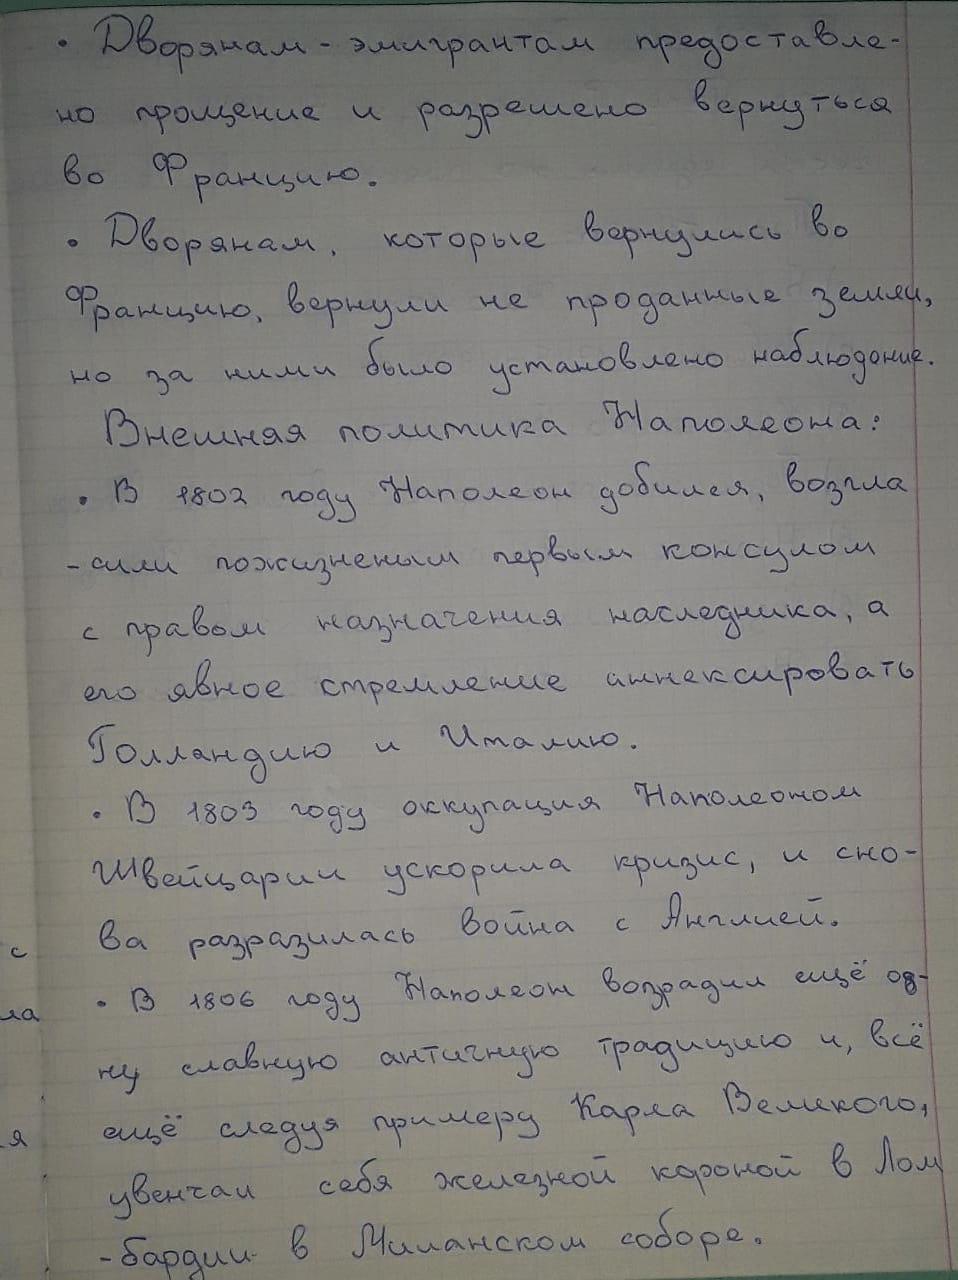 • Дворянам-эмигрантам предоставле-
но прощение и разрешено вернуться
во Францию.
• Дворянам, которые вернулись во
Францию, вернули не проданные земли,
но за ними было установлено наблюдение.
Внешняя политика Наполеона:
• В 1802 году Наполеон добился, возгла
-сили пожизненым первым консулом
с правом назначения наследника, а
его явное стремление аннексировать
Голландию и Италию.
• В 1803 году оккупация Наполеоном
Швейцарии ускорила кризис, и сно-
ва разразилась война с Англией.
• В 1806 году Наполеон возрадил ещё од-
ну славную античную традицию и, всё
ещё следуя примеру Карла Великого,
увенчал себя железной короной в Лом
-бардии в Миланском соборе.
с
ла
я